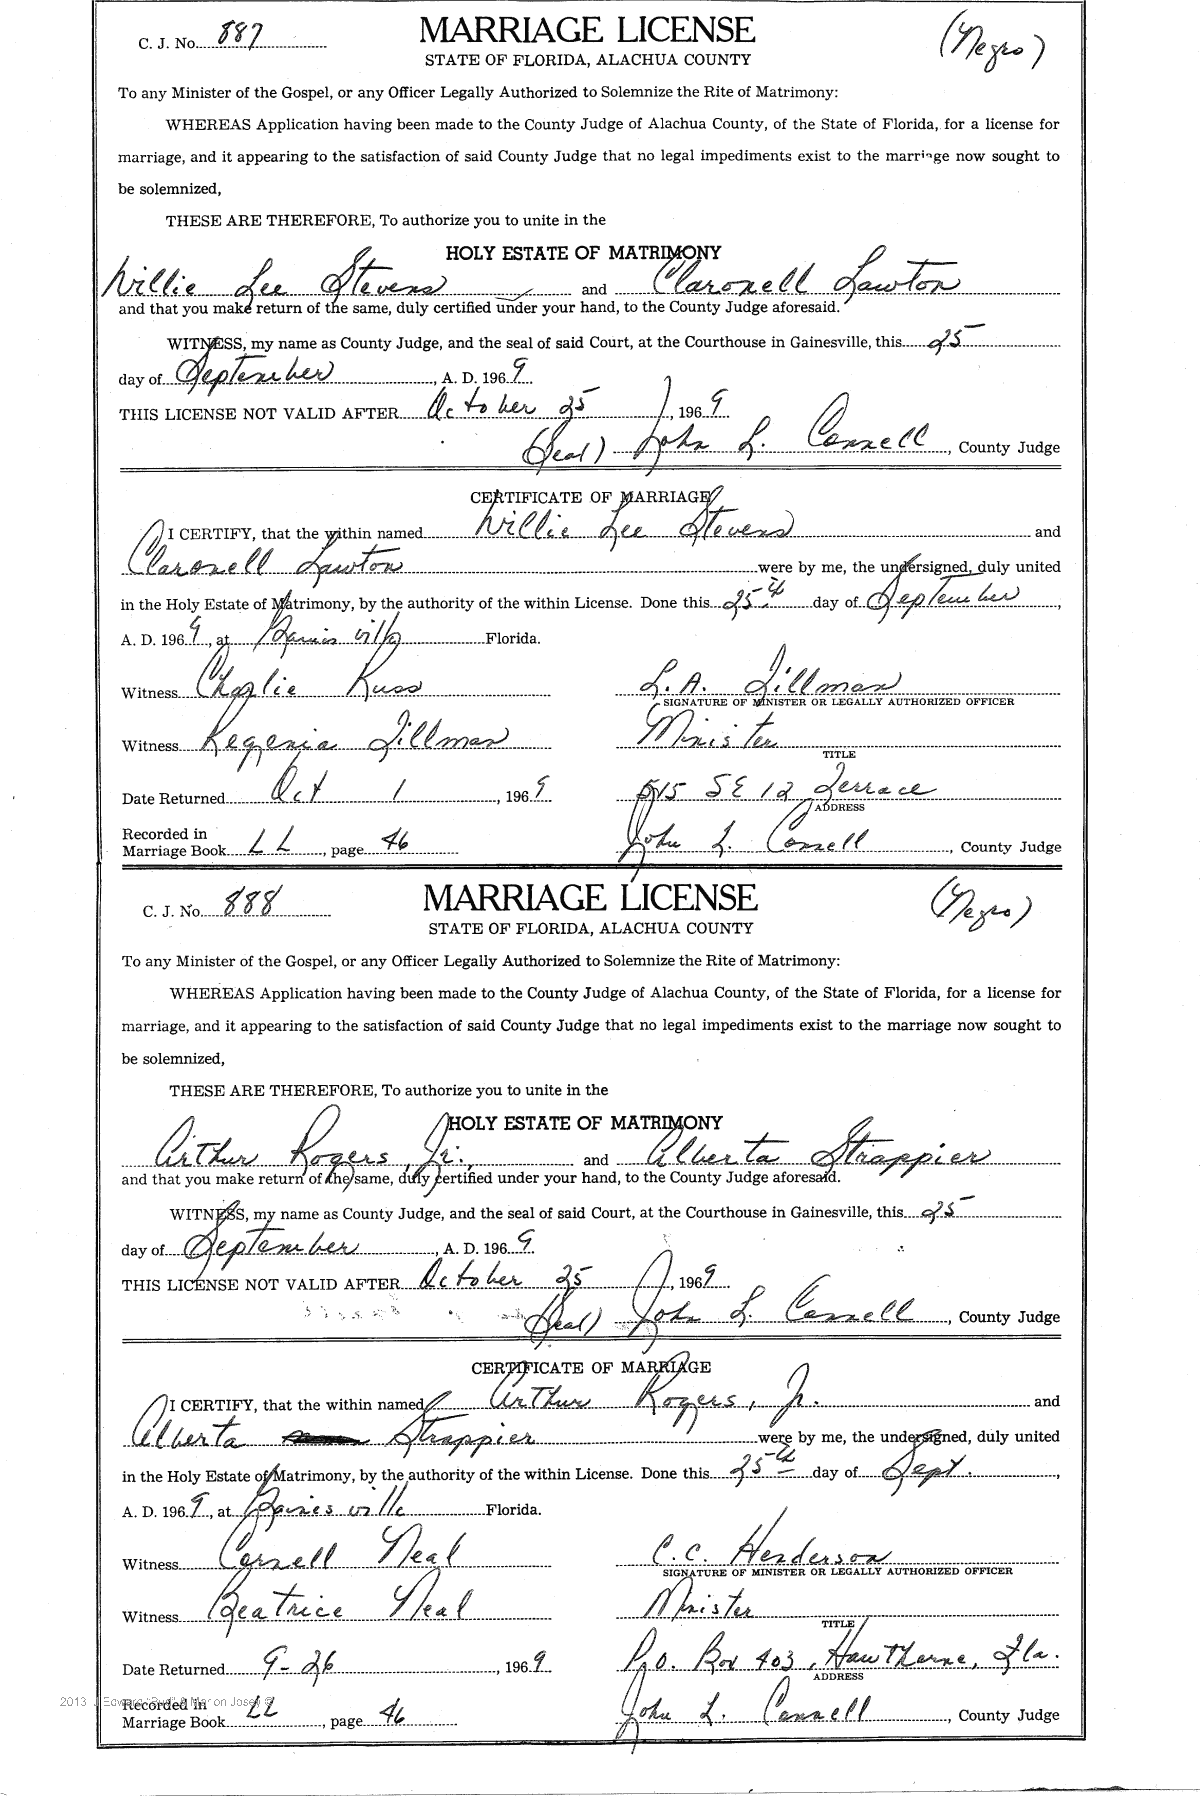 C. J. No. 887
MARRIAGE LICENSE
(Negro)
STATE OF FLORIDA, ALACHUA COUNTY
To any Minister of the Gospel, or any Officer Legally Authorized to Solemnize the Rite of Matrimony:
WHEREAS Application having been made to the County Judge of Alachua County, of the State of Florida, for a license for
marriage, and it appearing to the satisfaction of said County Judge that no legal impediments exist to the marriage now sought to
be solemnized,
THESE ARE THEREFORE, To authorize you to unite in the
HOLY ESTATE OF MATRIMONY
Willie Lee Stevens and Claronell Lawton
and that you make return of the same, duly certified under your hand, to the County Judge aforesaid.
WITNESS, my name as County Judge, and the seal of said Court, at the Courthouse in Gainesville, this 25
day of September, A. D. 1969.
THIS LICENSE NOT VALID AFTER October 25, 1969.
(Seal) John L. Connell, County Judge
CERTIFICATE OF MARRIAGE
I CERTIFY, that the within named Willie Lee Stevens and
Claronell Lawton were by me, the undersigned, duly united
in the Holy Estate of Matrimony, by the authority of the within License. Done this 25th day of September,
A. D. 1969, at Gainesville Florida.
Witness Charlie Russ L. A. Tillman
SIGNATURE OF MINISTER OR LEGALLY AUTHORIZED OFFICER
Witness Regenia Tillman Minister
TITLE
Date Returned Oct 1, 1969 515 SE 12 Terrace
ADDRESS
Recorded in
Marriage Book LL, page 46 John L. Connell, County Judge
C. J. No. 888
MARRIAGE LICENSE
(Negro)
STATE OF FLORIDA, ALACHUA COUNTY
To any Minister of the Gospel, or any Officer Legally Authorized to Solemnize the Rite of Matrimony:
WHEREAS Application having been made to the County Judge of Alachua County, of the State of Florida, for a license for
marriage, and it appearing to the satisfaction of said County Judge that no legal impediments exist to the marriage now sought to
be solemnized,
THESE ARE THEREFORE, To authorize you to unite in the
HOLY ESTATE OF MATRIMONY
Arthur Rogers, Jr. and Alberta Strappier
and that you make return of the same, duly certified under your hand, to the County Judge aforesaid.
WITNESS, my name as County Judge, and the seal of said Court, at the Courthouse in Gainesville, this 25
day of September, A. D. 1969.
THIS LICENSE NOT VALID AFTER October 25, 1969.
(Seal) John L. Connell, County Judge
CERTIFICATE OF MARRIAGE
I CERTIFY, that the within named Arthur Rogers, Jr. and
Alberta Strappier were by me, the undersigned, duly united
in the Holy Estate of Matrimony, by the authority of the within License. Done this 25th day of Sept.,
A. D. 1969, at Gainesville Florida.
Witness Cornell Neal C. C. Henderson
SIGNATURE OF MINISTER OR LEGALLY AUTHORIZED OFFICER
Witness Beatrice Neal Minister
TITLE
Date Returned 9-26, 1969 P.O. Box 403, Hawthorne, Fla.
ADDRESS
2013 J Edward "Bud" & Marion Josey ©
Recorded in
Marriage Book LL, page 46 John L. Connell, County Judge